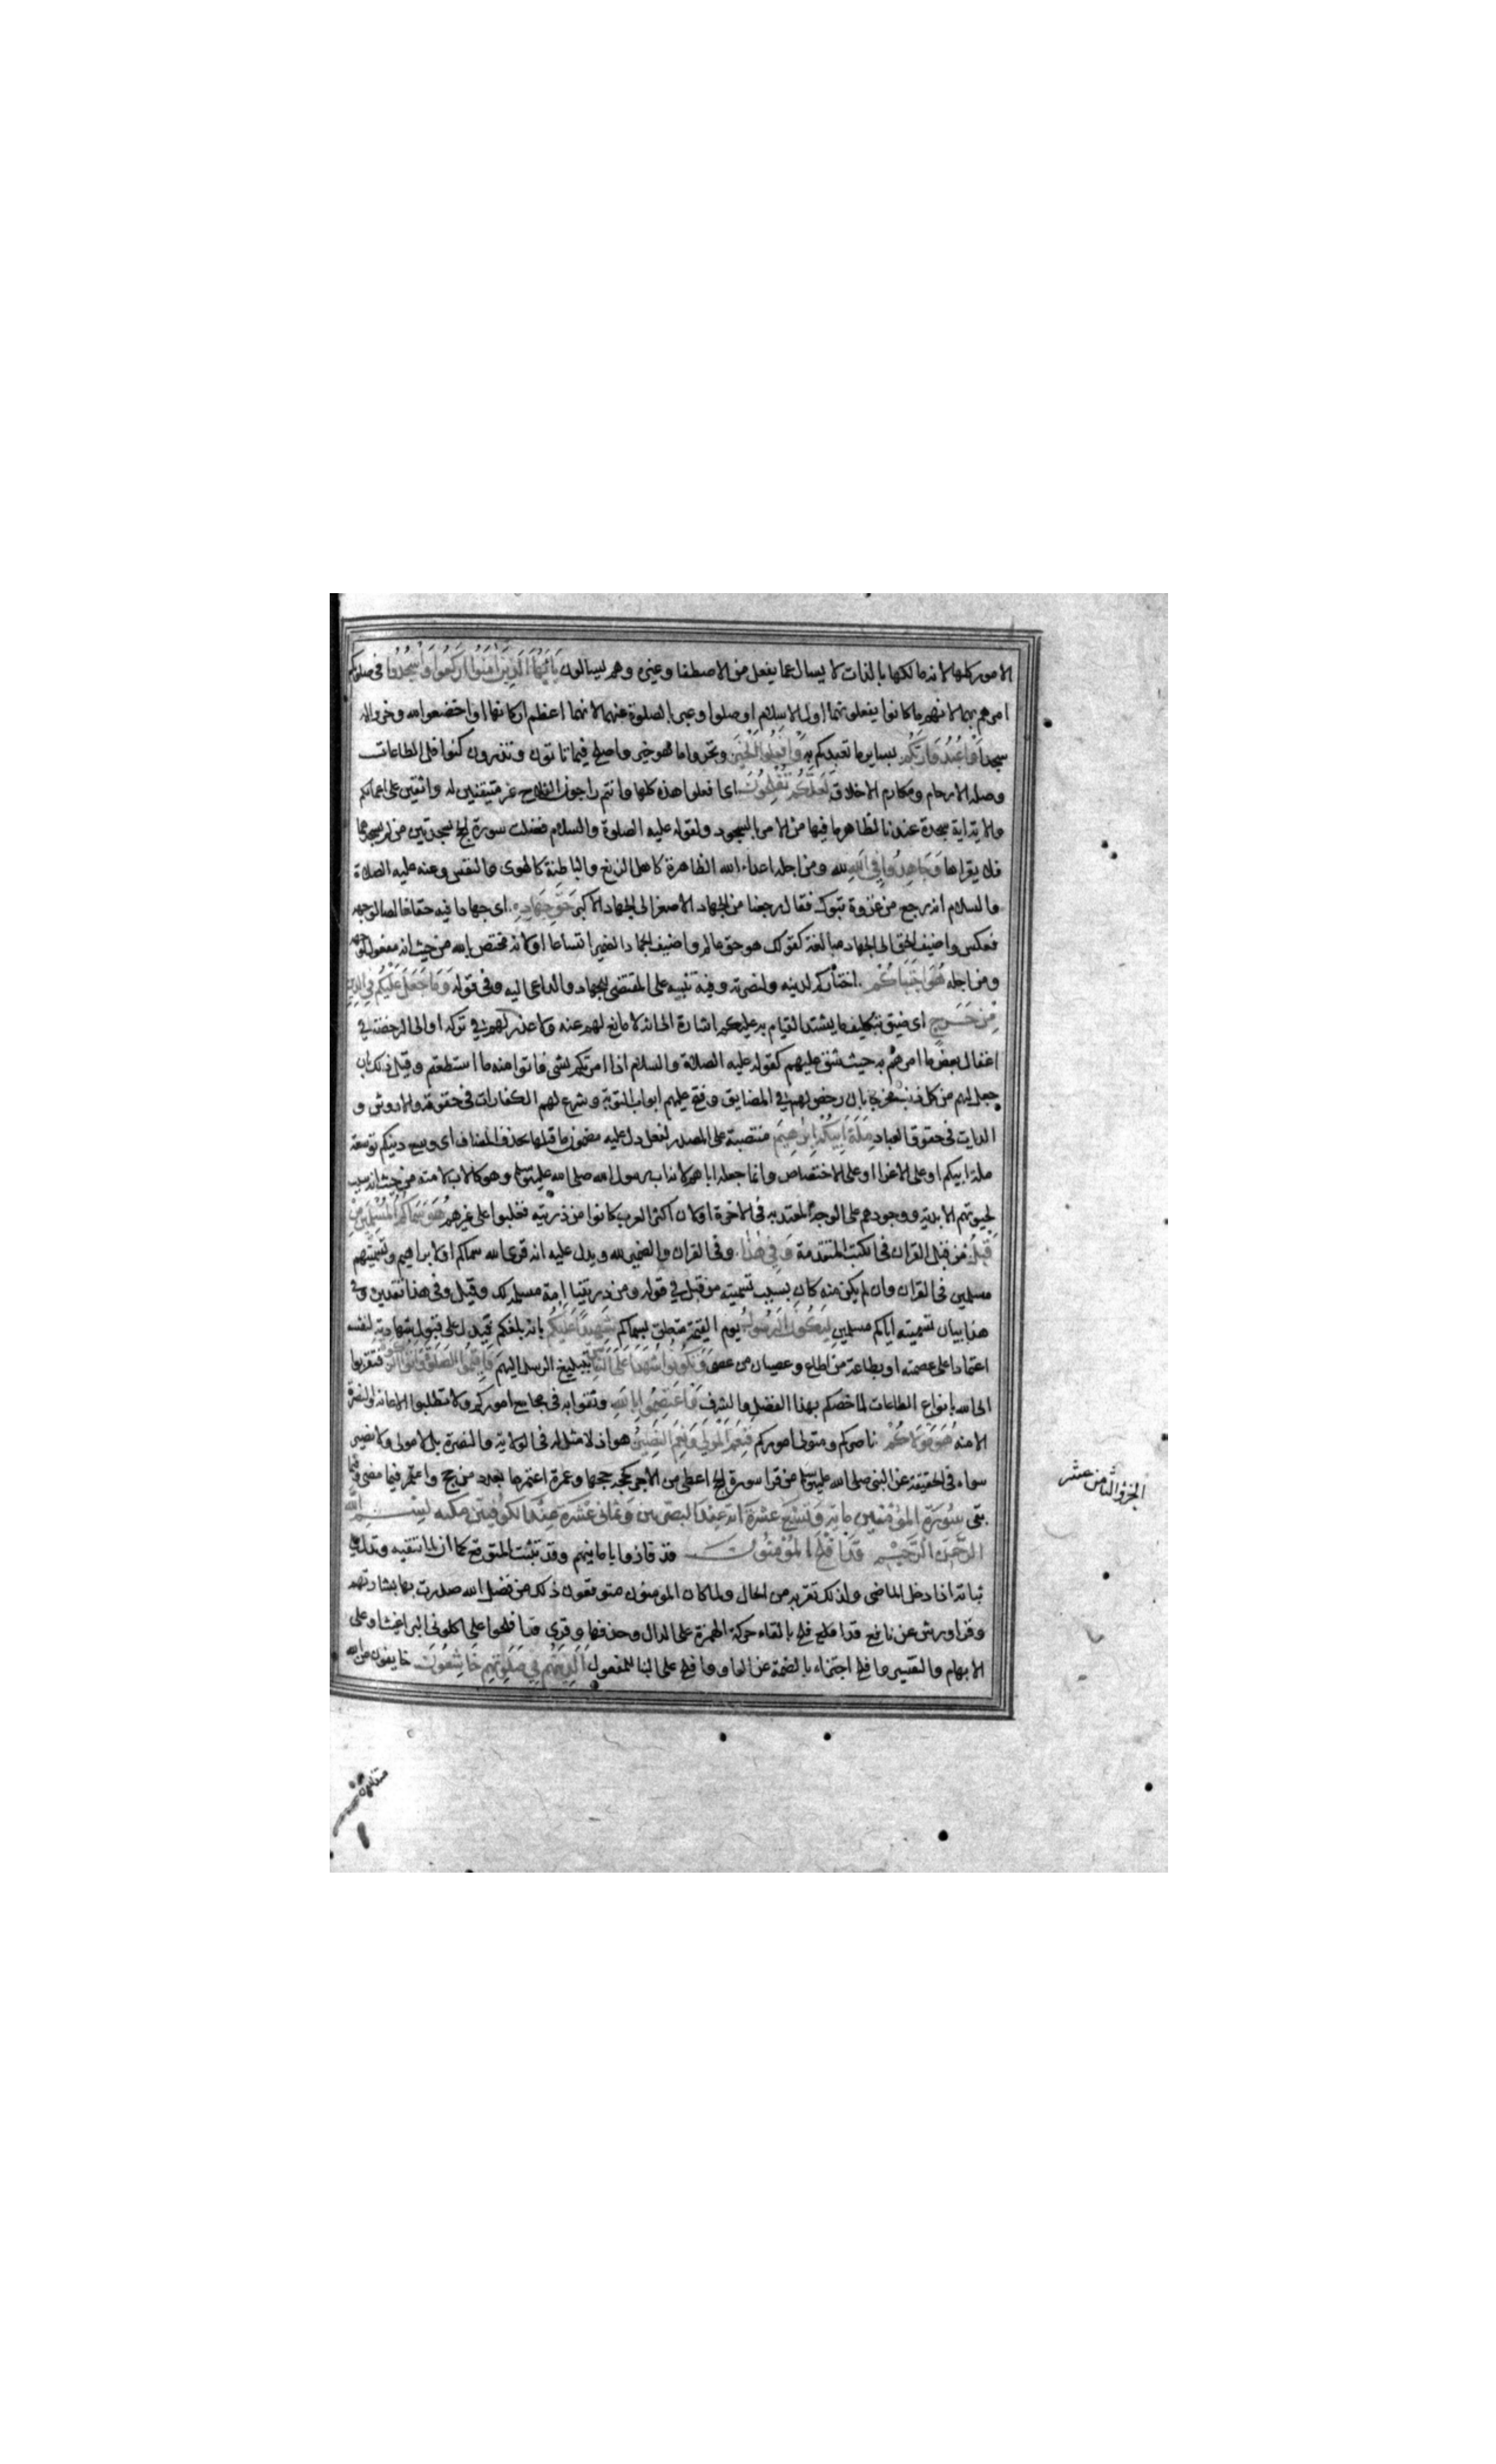 الامور كلها لانه مالكها بالذات لا يسال عما يفعل من الاصطفا وغيره وهم يسالون يَا أَيُّهَا الَّذِينَ آمَنُوا ارْكَعُوا وَاسْجُدُوا في صلوتكم
امرهم بهما لانهم ما كانوا يفعلونهما اول الاسلام او صلوا وعبر الصلوة عنهما لانهما اعظم اركانها او اخضعوا لله وخروا له
سجدا وَاعْبُدُوا رَبَّكُمْ بساير ما تعبدكم به وَافْعَلُوا الْخَيْرَ وتحروا ما هو خير واصلح فيما تاتون وتذرون كنوافل الطاعات
وصلة الارحام ومكارم الاخلاق لَعَلَّكُمْ تُفْلِحُونَ اى افعلوا هذه كلها وانتم راجون الفلاح غير متيقنين له واثقين على اعمالكم
والاية اية سجدة عندنا لظاهر ما فيها من الامر بالسجود ولقوله عليه الصلوة والسلام فضلت سورة الحج بسجدتين من لم يسجدهما
فلا يقراها وَجَاهِدُوا فِي اللَّهِ لله ومن اجله اعداء الله الظاهرة كاهل الزيغ والباطنة كالهوى والنفس وعنه عليه الصلاة
والسلام انه رجع من غزوة تبوك فقال رجعنا من الجهاد الاصغر الى الجهاد الاكبر حَقَّ جِهَادِهِ اى جهادا فيه حقا خالصا لوجهه
فعكس واضيف الحق الى الجهاد مبالغة كقولك هو حق عالم واضيف الجهاد الى الضمير اتساعا او لانه مختص بالله من حيث انه مفعول لوجهه
ومن اجله هُوَ اجْتَبَاكُمْ اختاركم لدينه ولنصرته وفيه تنبيه على المقتضى للجهاد والداعى اليه وفى قوله وَمَا جَعَلَ عَلَيْكُمْ فِي الدِّينِ
مِنْ حَرَجٍ اى ضيق بتكليف ما يشتد القيام به عليكم اشارة الى انه لا مانع لهم عنه ولا عذر لهم في تركه او الى الرخصة في
اغفال بعض ما امرهم به حيث شق عليهم كقوله عليه الصلاة والسلام اذا امرتكم بشى فاتوا منه ما استطعتم وقيل ذلك بان
جعل لهم من كل ذنب مخرجا بان رخص لهم في المضايق وفتح عليهم ابواب التوبة وشرع لهم الكفارات في حقوقه والاروش و
الديات في حقوق العباد مِلَّةَ أَبِيكُمْ إِبْرَاهِيمَ منتصبة على المصدر لفعل دل عليه مضمون ما قبلها بحذف المضاف اى وسع دينكم توسعة
ملة ابيكم او على الاغراا و على الاختصاص وانما جعله اباهم لانه اب رسول الله صلى الله عليه وسلم وهو كالاب لامته من حيث انه سبب
لحيوتهم الابدية ووجودهم على الوجه المعتد به في الاخرة او لان اكثر العرب كانوا من ذريته فغلبوا على غيرهم هُوَ سَمَّاكُمُ الْمُسْلِمِينَ مِنْ
قَبْلُ من قبل القران في الكتب المتقدمة وَفِي هَٰذَا وفى القران والضمير لله ويدل عليه انه قرى الله سماكم او لابراهيم وتسميتهم
مسلمين في القران وان لم يكن منه كان بسبب تسميته من قبل في قوله ومن ذريتنا امة مسلمة لك وقيل وفى هذا تقديره وفى
هذا بيان تسميته اياكم مسلمين لِيَكُونَ الرَّسُولُ يوم القيمة متعلق بسماكم شَهِيدًا عَلَيْكُمْ بانه بلغكم فيدل على قبول شهادته لنفسه
اعتمادا على عصمته او بطاعة من اطاع وعصيان من عصى وَتَكُونُوا شُهَدَاءَ عَلَى النَّاسِ بتبليغ الرسل اليهم فَأَقِيمُوا الصَّلَاةَ وَآتُوا الزَّكَاةَ فتقربوا
الى الله بانواع الطاعات لما خصكم بهذا الفضل والشرف وَاعْتَصِمُوا بِاللَّهِ وثقوا به في مجامع اموركم ولا تطلبوا الاعانة والنصرة
الا منه هُوَ مَوْلَاكُمْ ناصركم ومتولى اموركم فَنِعْمَ الْمَوْلَىٰ وَنِعْمَ النَّصِيرُ هو اذ لا مثل له في الولاية والنصرة بل لا مولى ولا نصير
سواه في الحقيقة عن النبى صلى الله عليه وسلم من قرا سورة الحج اعطى من الاجر كحجة حجها وعمرة اعتمرها بعدد من حج واعتمر فيما مضى وفيما
بقى سورة المؤمنين ماية وتسع عشرة اية عند البصريين وثمانى عشرة عند الكوفيين مكية بسم الله
الرَّحْمَٰنِ الرَّحِيمِ قَدْ أَفْلَحَ الْمُؤْمِنُونَ قد فازوا بامانيهم وقد تثبت المتوقع كما ان لما تنفيه وتدل على
ثباته اذا دخل الماضى ولذلك تقربه من الحال ولما كان المومنون متوقعون ذلك من فضل الله صدرت بها بشارتهم
وقرا ورش عن نافع قد افلح بالقاء حركة الهمزة على الدال وحذفها وقرى قد افلحوا على اكلونى البراغيث او على
الابهام والتفسير وافلح اجتزاء بالضمة عن الواو وافلح على البنا للمفعول الَّذِينَ هُمْ فِي صَلَاتِهِمْ خَاشِعُونَ خايفون من الله
الجزو الثامن عشر